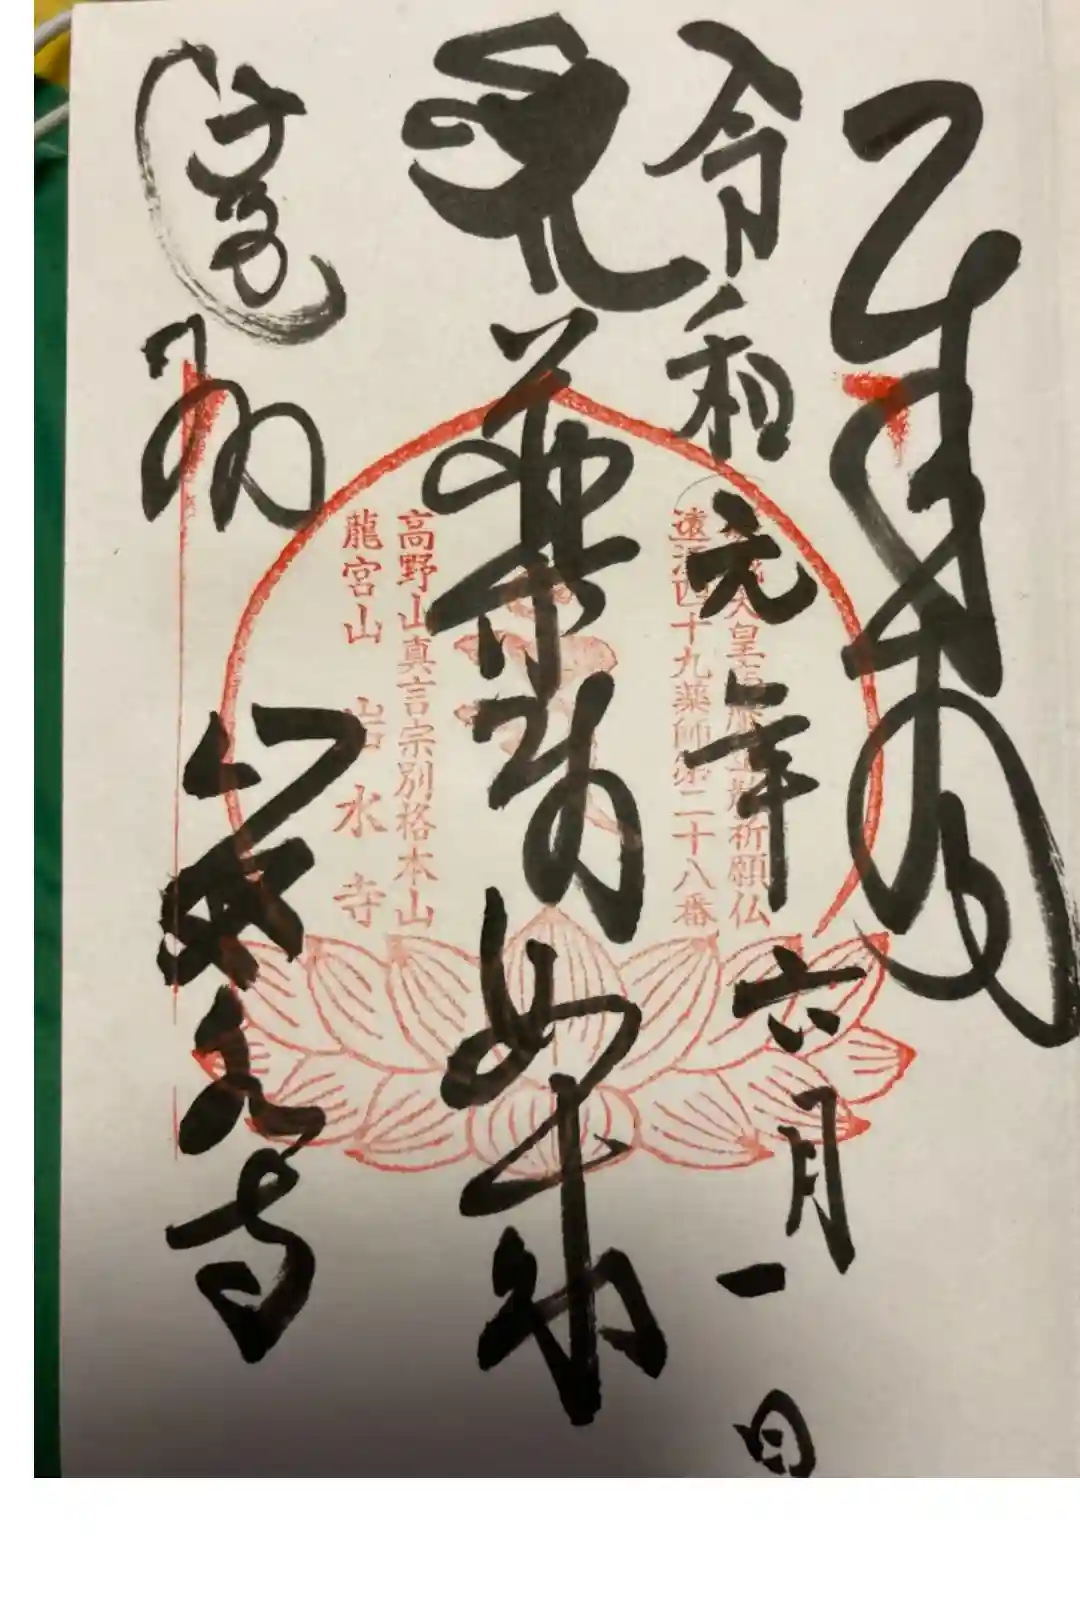 奉拝
令和元年六月一日
天皇 祈願仏
遠江四十九薬師第二十八番
薬師如来
高野山真言宗別格本山
龍宮山 岩水寺
遠州 岩水寺